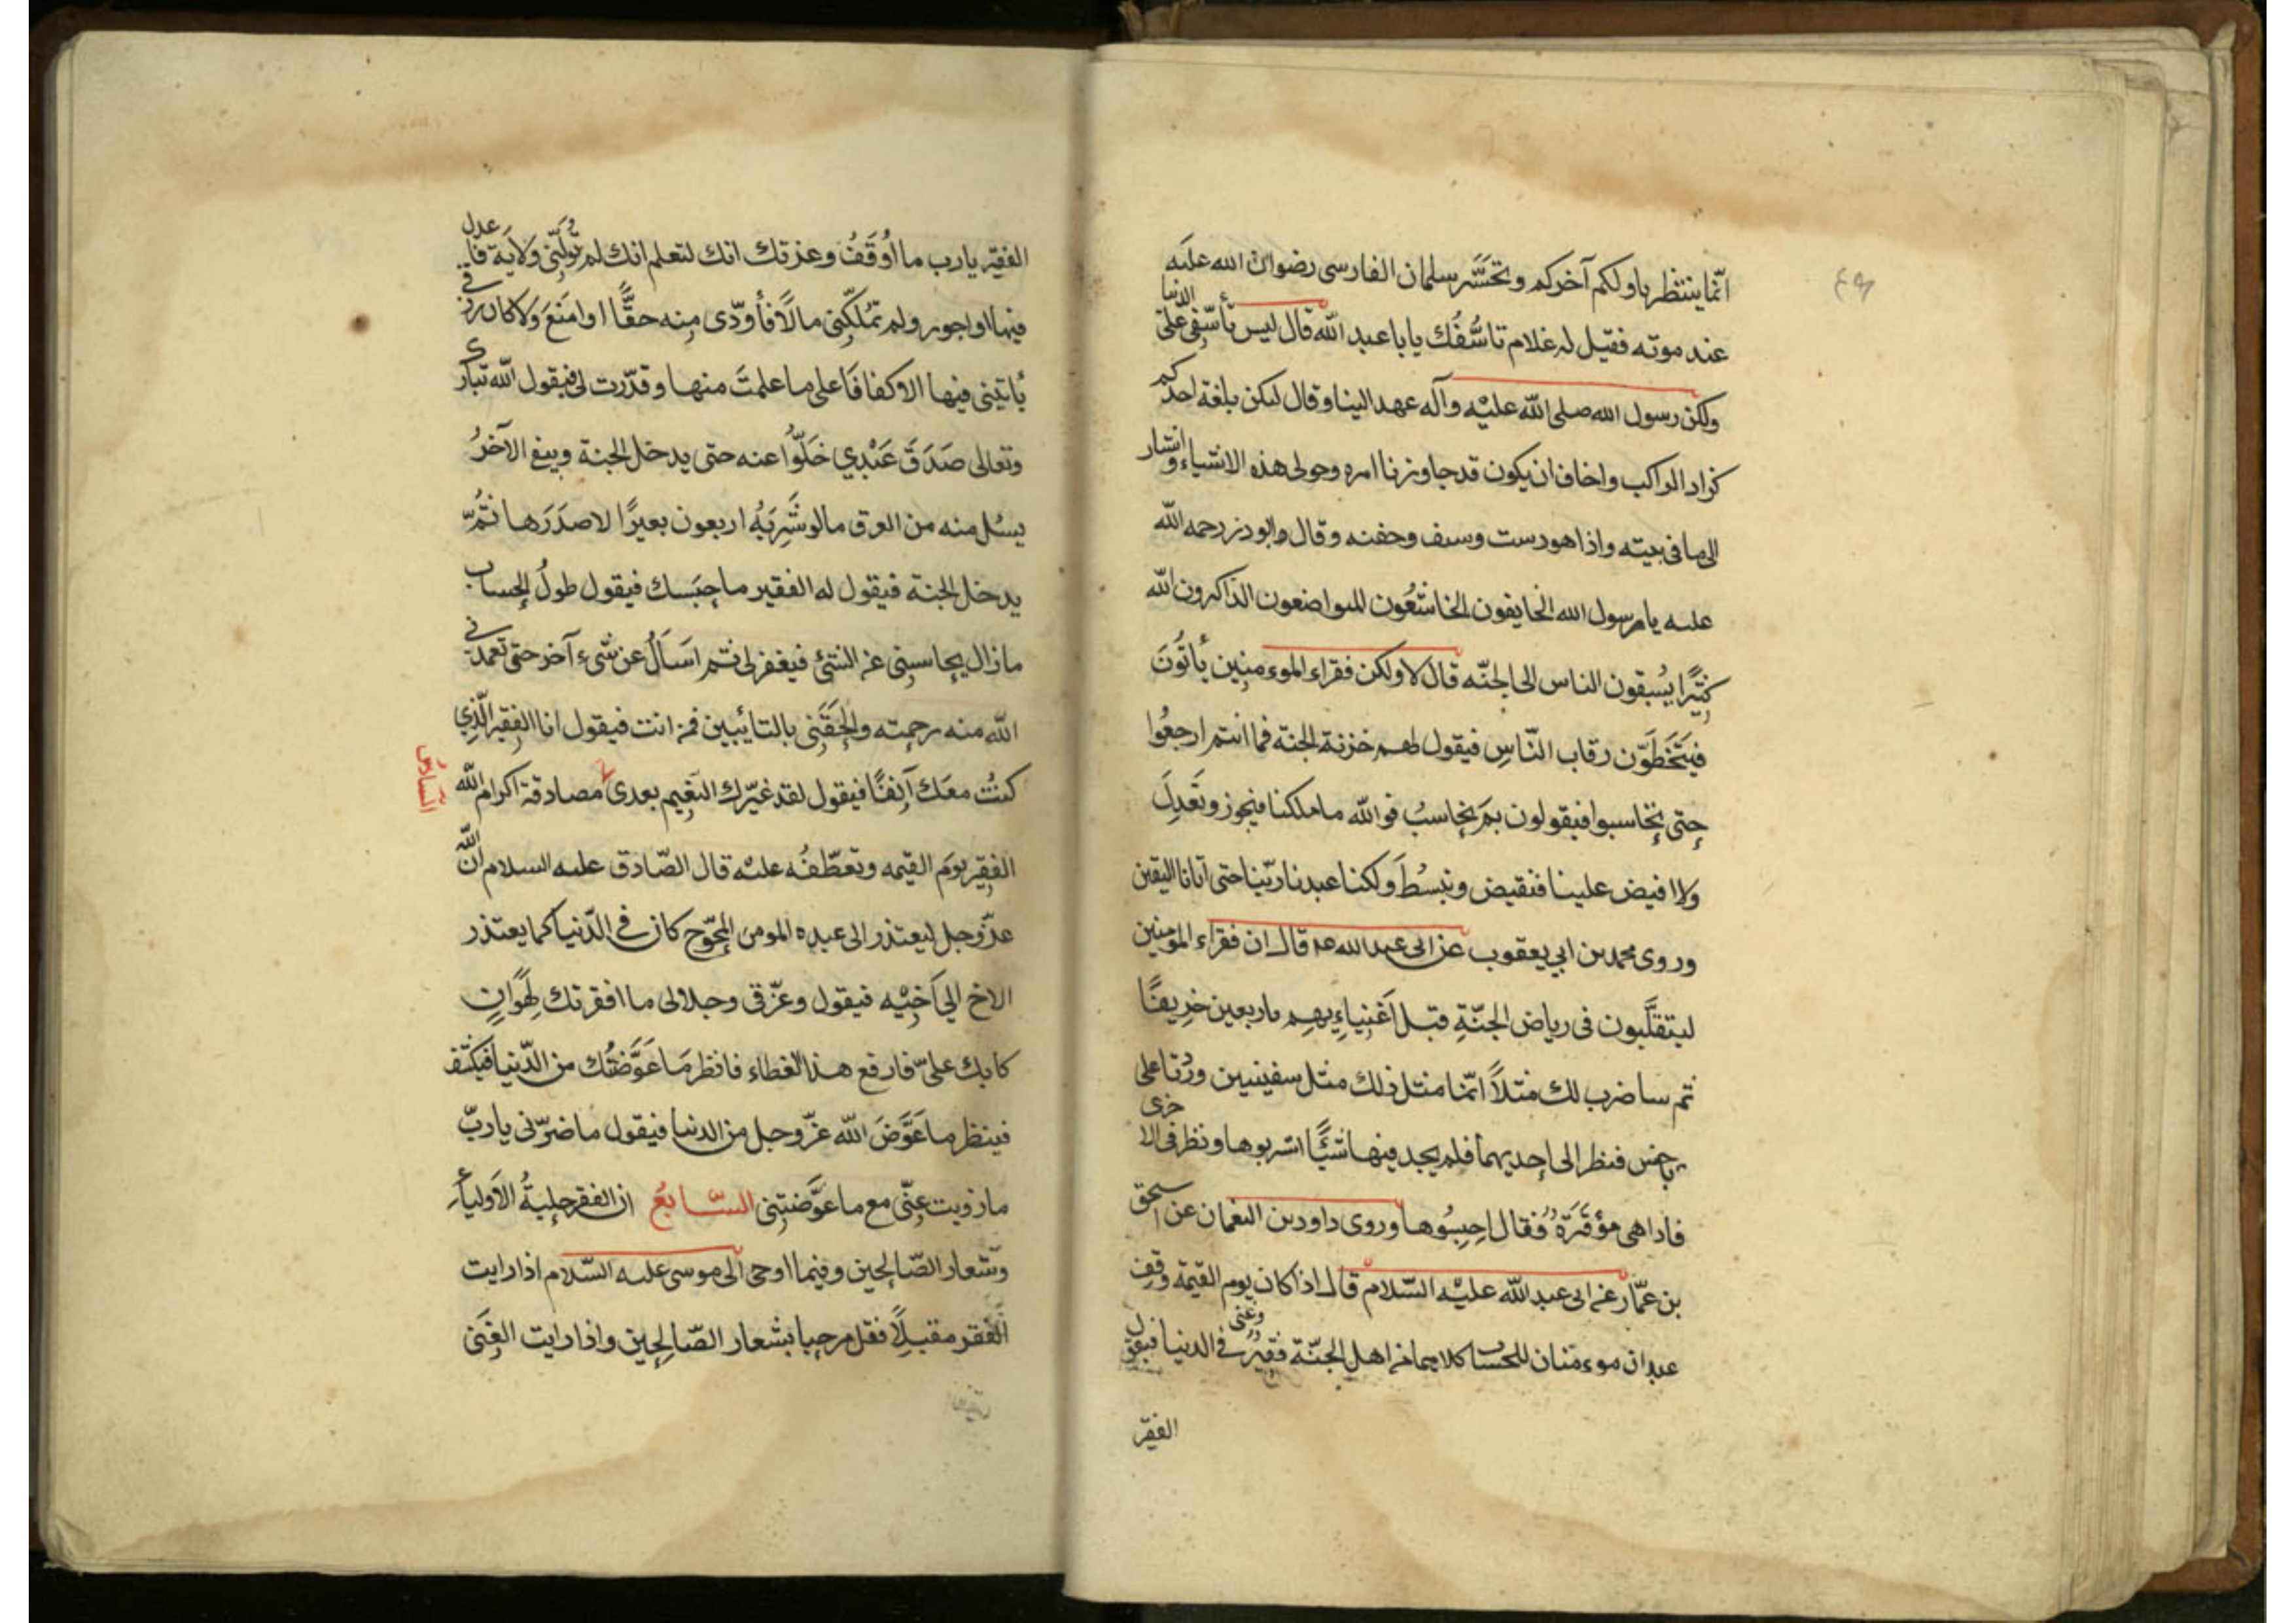 ٤٩
انّما ينتظر باولكم آخركم وتحَسَّر سلمان الفارسى رضوان الله عليه
عند موته فقيل له علام تاسُّفُك يا با عبد الله قال ليس تأسّفى على الدنيا
ولكن رسول الله صلى الله عليْه وآله عهد الينا وقال ليكن بلغة احدكم
كزاد الراكب واخاف ان يكون قد جاوزنا امره وحولى هذه الاشياء واشار
الى ما فى بيته واذا هو دست وسيف وجفنه وقال ابوذر رحمه الله
عليه يا رسول الله الخايفون الخاشعُون المتواضعون الذاكرون الله
كثيًرا يسُبقون الناس الى الجنّه قال لا ولكن فقراء الموءمنين يأتُونَ
فيَتَخَطَّوّن رقاب النّاسِ فيقول لهم خزنة الجنة فما انتم ارجعُوا
حتى تحاسبوا فيقولون بمَ نحاسبُ فوالله ما ملكنا فنجوز ونَعدِلَ
ولا افيض علينا فنقيض ونبسُطَ ولكنا عبدنا ربّنا حتى اتانا اليقين
وروى محمد بن ابي يعقوب عن ابى عبد الله عه قال ان فقراء المومنين
ليتقلَّبون فى رياض الجنّةِ قبل اَغنِياءِيهِم باربعين خرِيفًا
ثم ساضرب لك مثلاً انمّا مثل ذلك مثل سفينيين ورُتا على
باخس فنظر الى احديهما فلم يجد فيها شيًّا اسربوها ونظر فى الاخرى
فاذا هى مؤقَرَةٌ فقال احبِسُوها وروى داود بن النعمان عن اسحق
بن عمّار عن ابى عبد الله عليْه السّلام قال اذا كان يوم القيمة وقف
عبدان موءمنان للحساب كلاهما من اهل الجنّة فقيرٌ فى الدنيا وغنى فيقول
الفقير
الفقيّر يا رب ما اُوقَفُ وعزتك انك لتعلم انك لم تُولّنى ولايَة فاعدل
فيها او اجور ولم تمُلّكنى مالاً فأوَدّى مِنه حقًّا او امنَعَ وَلا كان رزقى
يأتينى فيها الا كفافًا على ما علمتَ منها وقدّرت لى فيقول الله تبارك
وتعالى صَدَقَ عَبْدِي خَلّوُا عنه حتى يدخل الجنة ويبقى الآخرُ
يسُل منه من العرق ما لو شَرِبَهُ اربعون بعيرًا لاصدَرَها ثمُّ
يدخل الجنة فيقول له الفقير ما حبَسك فيقول طولُ الحساب
ما زال يحاسبنى عن الشئ فيغفر لى ثم اسَالُ عن شىء آخر حتى تغمدنى
الله منه برحمته والحَقَنى بالتايبين فمن انت فيقول انا الفقير الّذِي
كنتُ معَك آنِفًا فيقول لقد غيّرك النعيم بعدى مصادقة اكرام الله
السّادسُ
الفقير يومَ القيمه وتعطّفُه عليْه قال الصّادق عليه السلام انّ الله
عزّوجل ليعتذر الى عبده المومن المحوّج كان في الدّنيا كما يعتذر
الاخ الي اَخيْه فيقول وعزّتى وجلالى ما افقرتك لِهَوانٍ
كا بك علىّ فارفع هذا الغطاء فانظر مَا عَوَّضتُك من الدّنيا فيكشف
فينظر ما عَوَّضَ الله عزّوجل من الدنيا فيقول ما ضرّنى يا ربّ
ما زويت عنّى مع ما عوَّضتنِى السّابعُ ان الفقر حليةُ الاَولياءِ
وشعار الصّالحين وفيما اوحى الى موسى عليه السّلام اذا رايت
الفقر مقبلاً فقل مرحبا بشعار الصّالحِين واذا رايت الغِنَى